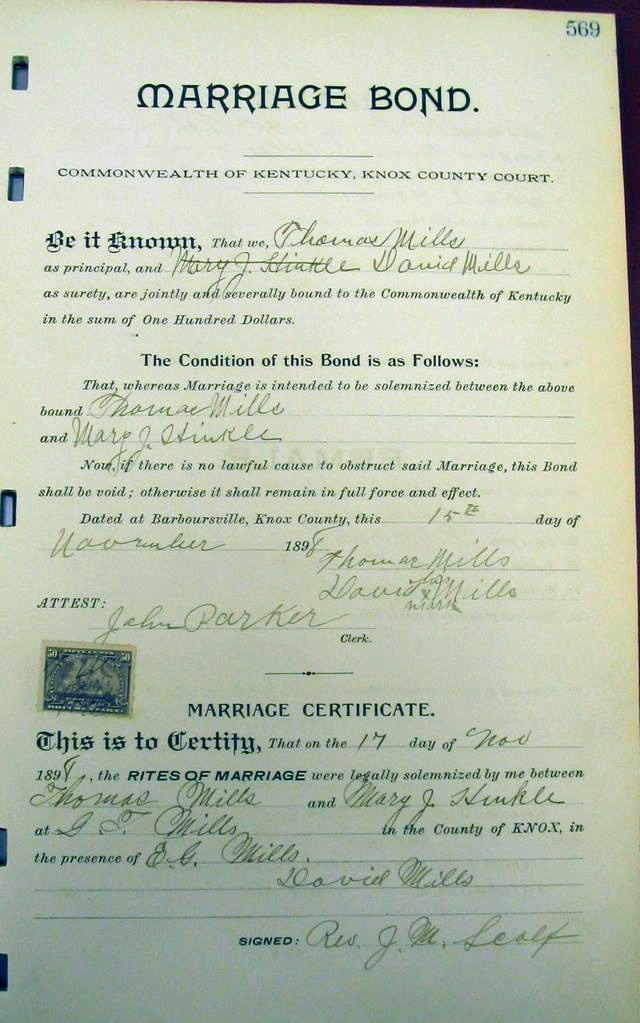 569
MARRIAGE BOND.
COMMONWEALTH OF KENTUCKY, KNOX COUNTY COURT.
Be it Known, That we, Thomas Mills
as principal, and Mary J. Hinkle David Mills
as surety, are jointly and severally bound to the Commonwealth of Kentucky
in the sum of One Hundred Dollars.
The Condition of this Bond is as Follows:
That, whereas Marriage is intended to be solemnized between the above
bound Thomas Mills
and Mary J. Hinkle
Now, if there is no lawful cause to obstruct said Marriage, this Bond
shall be void; otherwise it shall remain in full force and effect.
Dated at Barboursville, Knox County, this 15th day of
November 1898
Thomas Mills
David his x mark Mills
ATTEST:
John Parker
Clerk.
50 50
MARRIAGE CERTIFICATE.
This is to Certify, That on the 17 day of Nov
1898, the RITES OF MARRIAGE were legally solemnized by me between
Thomas Mills and Mary J. Hinkle
at G. T. Mills in the County of KNOX, in
the presence of E.G. Mills.
David Mills
SIGNED: Rev. J. M. Scalf